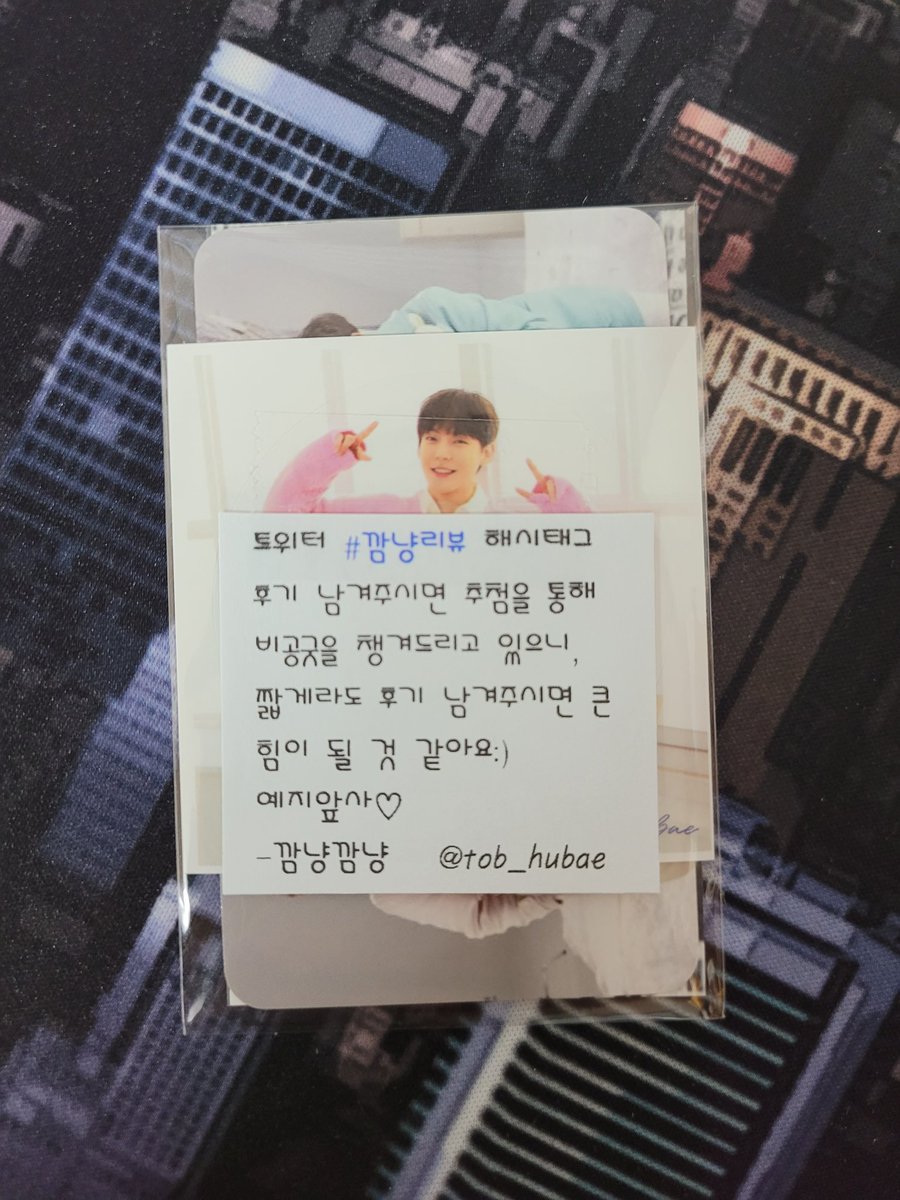 트위터 #깜냥리뷰 해시태그
후기 남겨주시면 추첨을 통해
비공굿을 챙겨드리고 있으니,
짧게라도 후기 남겨주시면 큰
힘이 될 것 같아요:)
예지앞사♡
-깜냥깜냥 @tob_hubae
Bae